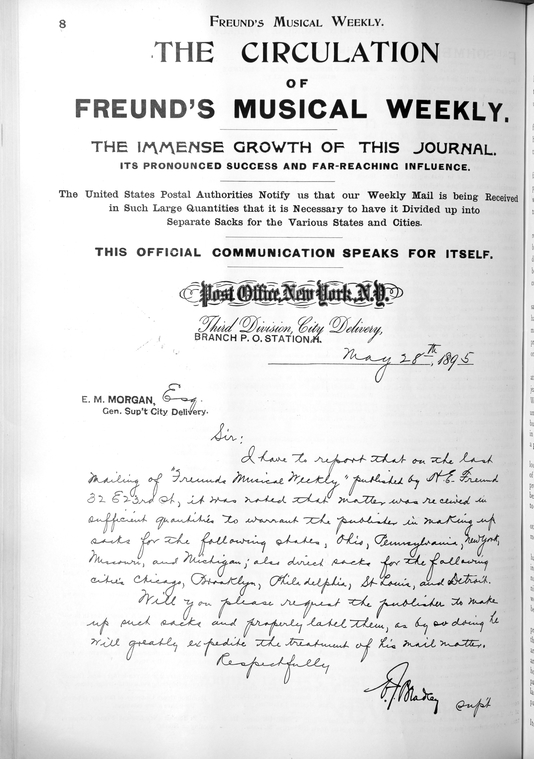 8
FREUND'S MUSICAL WEEKLY.
THE CIRCULATION
OF
FREUND'S MUSICAL WEEKLY.
THE IMMENSE GROWTH OF THIS JOURNAL.
ITS PRONOUNCED SUCCESS AND FAR-REACHING INFLUENCE.
The United States Postal Authorities Notify us that our Weekly Mail is being Received
in Such Large Quantities that it is Necessary to have it Divided up into
Separate Sacks for the Various States and Cities.
THIS OFFICIAL COMMUNICATION SPEAKS FOR ITSELF.
Post Office, New York, N.Y.
Third Division, City Delivery,
BRANCH P. O. STATION H.
May 28th, 1895
E. M. MORGAN, Esq.
Gen. Sup't City Delivery.
Sir:
I have to report that on the last
mailing of "Freunds Musical Weekly" published by H E. Freund
32 E 23rd St, it was noted that matter was received in
sufficient quantities to warrant the publisher in making up
sacks for the following states, Ohio, Pennsylvania, New York,
Missouri, and Michigan; also direct sacks for the following
cities Chicago, Brooklyn, Philadelphia, St Louis, and Detroit.
Will you please request the publisher to make
up such sacks and properly label them, as by so doing he
will greatly expedite the treatment of his mail matter.
Respectfully
Bradley
Sup't